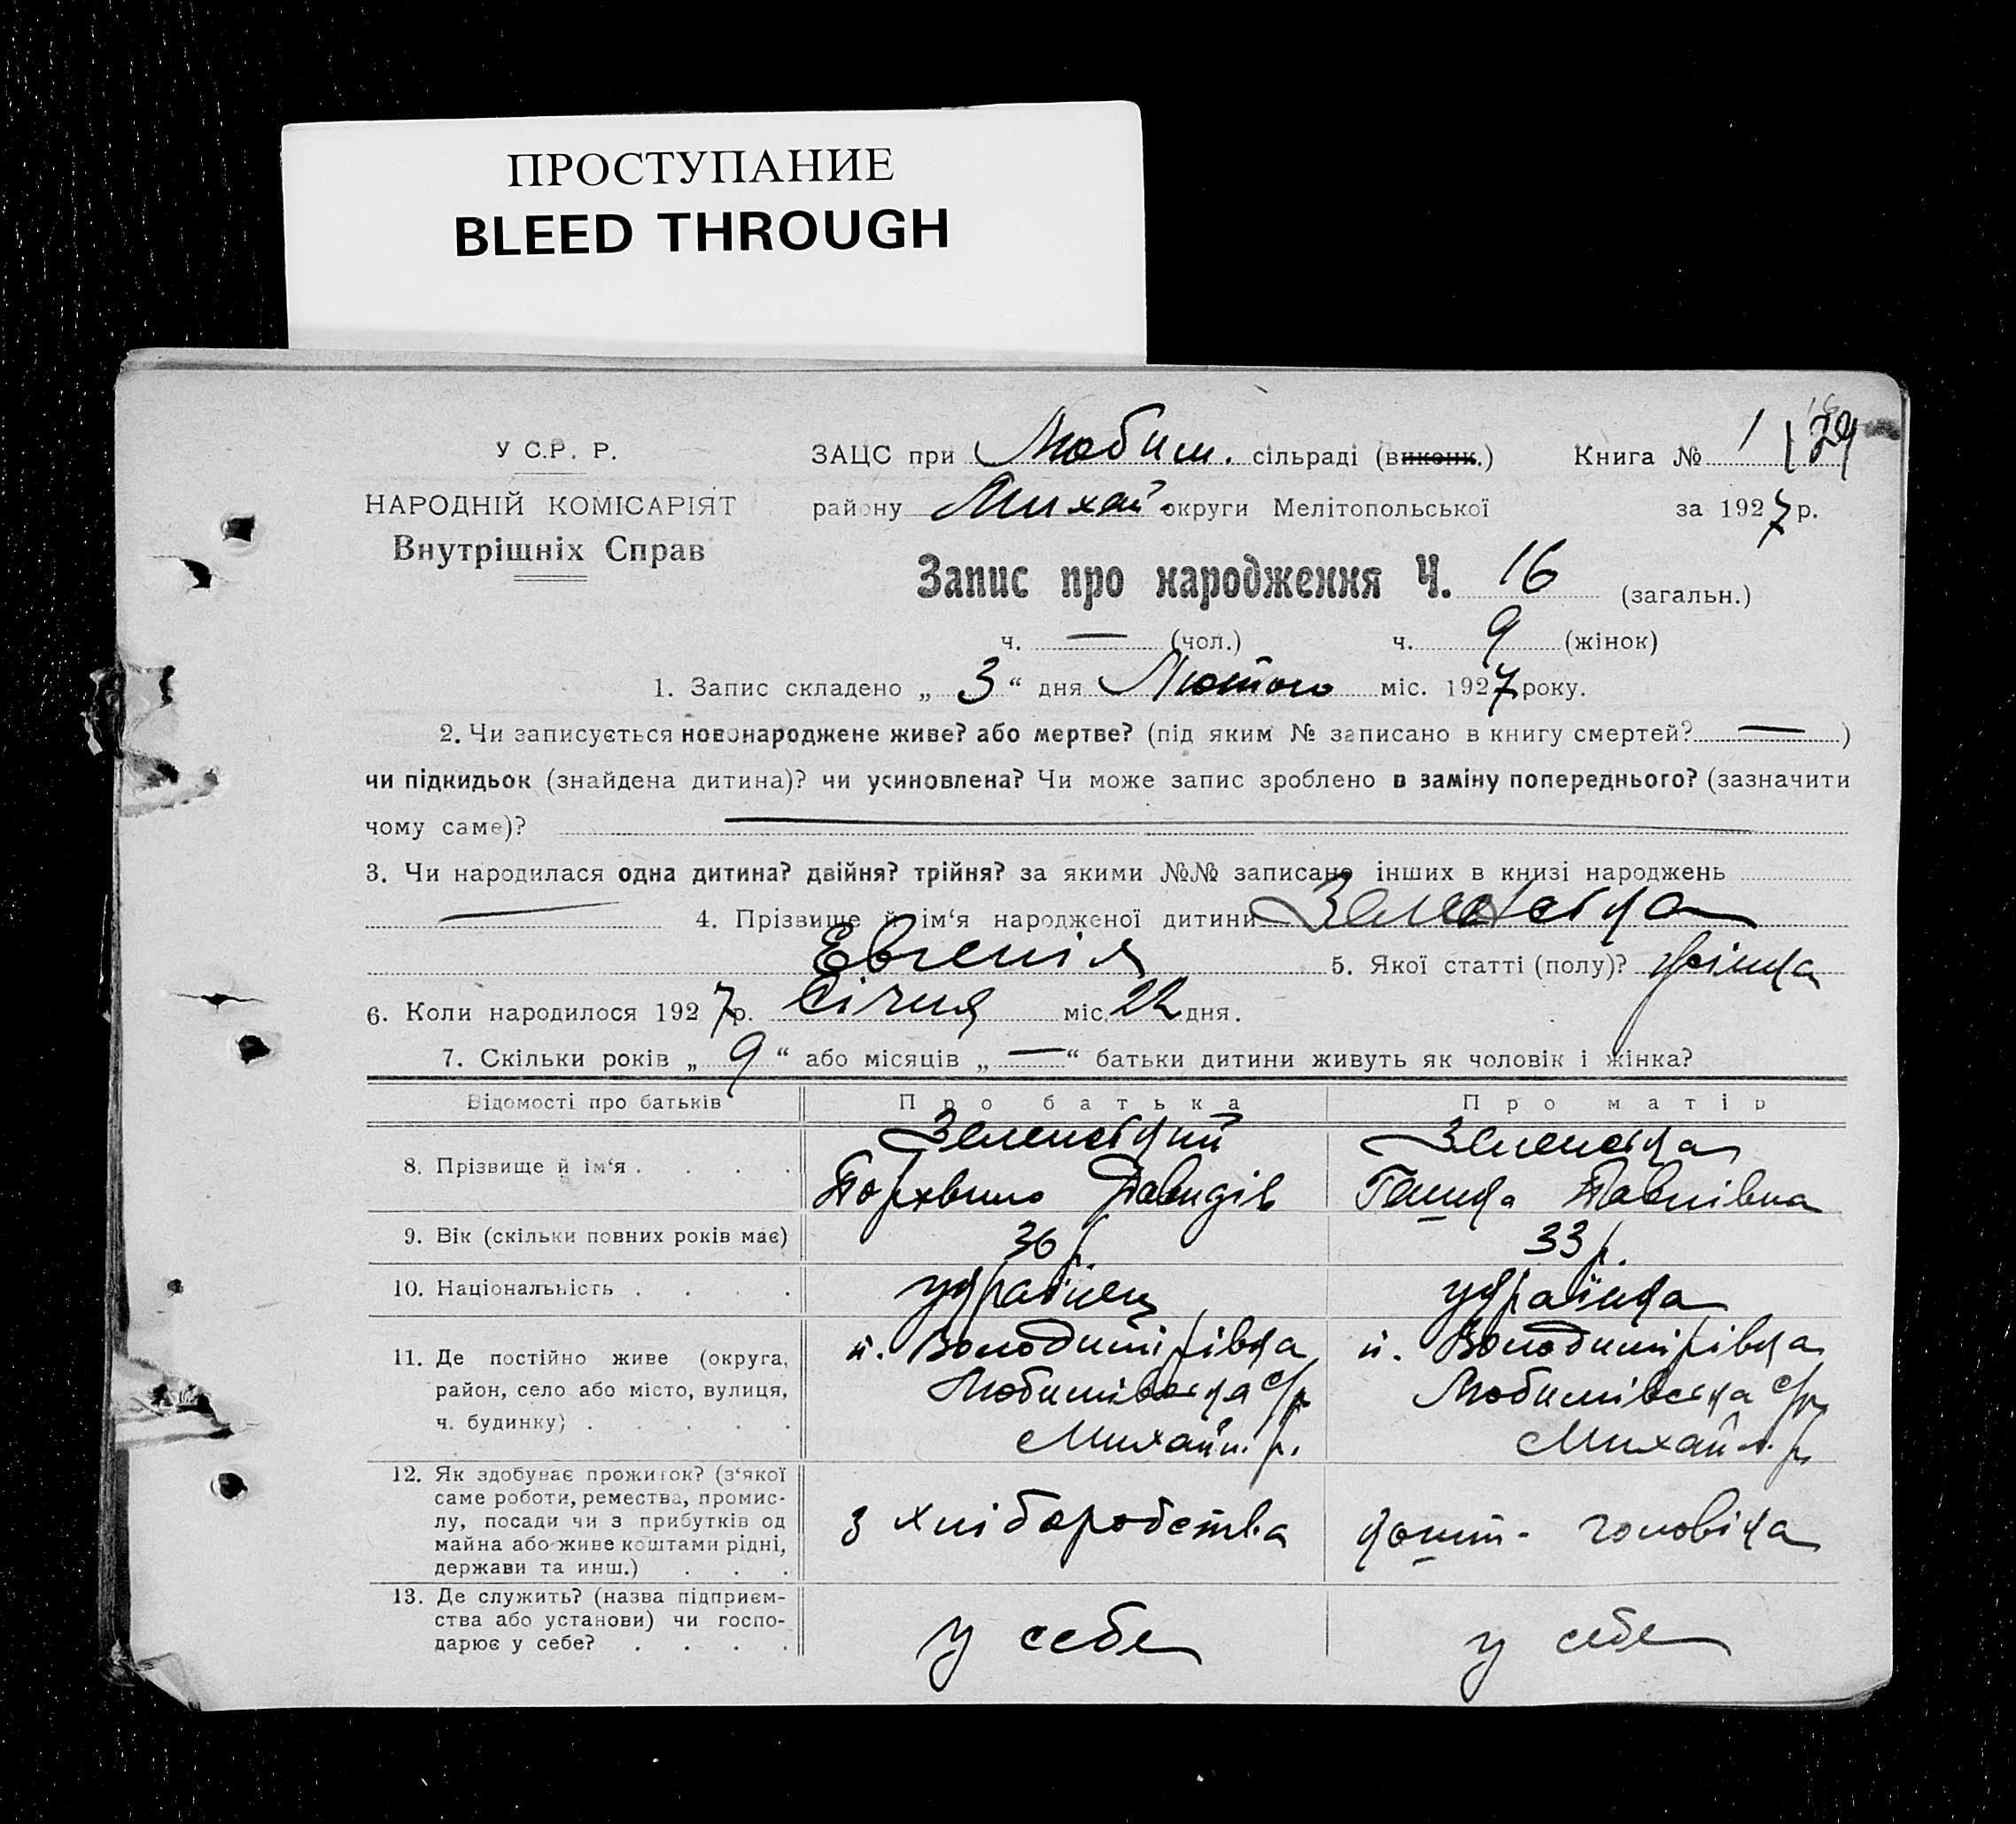 ПРОСТУПАНИЕ
BLEED THROUGH
У С.Р. Р.
НАРОДНІЙ КОМІСАРІЯТ
Внутрішніх Справ
ЗАЦС при Любим. сільраді (виконк.) Книга № 1 29
району Михай округи Мелітопольської за 1927 р.
Запис про народження Ч. 16 (загальн.)
ч. — (чол.) ч. 9 (жінок)
1. Запис складено „ 3 “ дня Лютого міс. 1927 року.
2. Чи записується новонароджене живе? або мертве? (під яким № записано в книгу смертей? — )
чи підкидьок (знайдена дитина)? чи усиновлена? Чи може запис зроблено в заміну попереднього? (зазначити
чому саме)? —
3. Чи народилася одна дитина? двійня? трійня? за якими №№ записано інших в книзі народжень
— 4. Прізвище й ім‘я народженої дитини Зеленська
Евгенія 5. Якої статті (полу)? жінка
6. Коли народилося 1927 р. Січня міс. 22 дня.
7. Скільки років „ 9 “ або місяців „ — “ батьки дитини живуть як чоловік і жінка?
Відомості про батьків Про батька Про матір
8. Прізвище й ім‘я . . . . Зеленський Зеленська
Давидів Ганна Павлівна
9. Вік (скільки повних років має) 36 р. 33 р.
10. Національність . . . . українец українка
11. Де постійно живе (округа, район, село або місто, вулиця, ч. будинку) . . . . .
п. Володимірівка п. Володимірівка
Любимівська с/р Любимівська с/р
Михайл. р. Михайл. р.
12. Як здобуває прожиток? (з‘якої
саме роботи, ремества, промис-
лу, посади чи з прибутків од
майна або живе коштами рідні,
держави та инш.) . . .
з хліборобства кошт. чоловіка
13. Де служить? (назва підприєм-
ства або установи) чи госпо-
дарює у себе? . . . .
у себе у себе